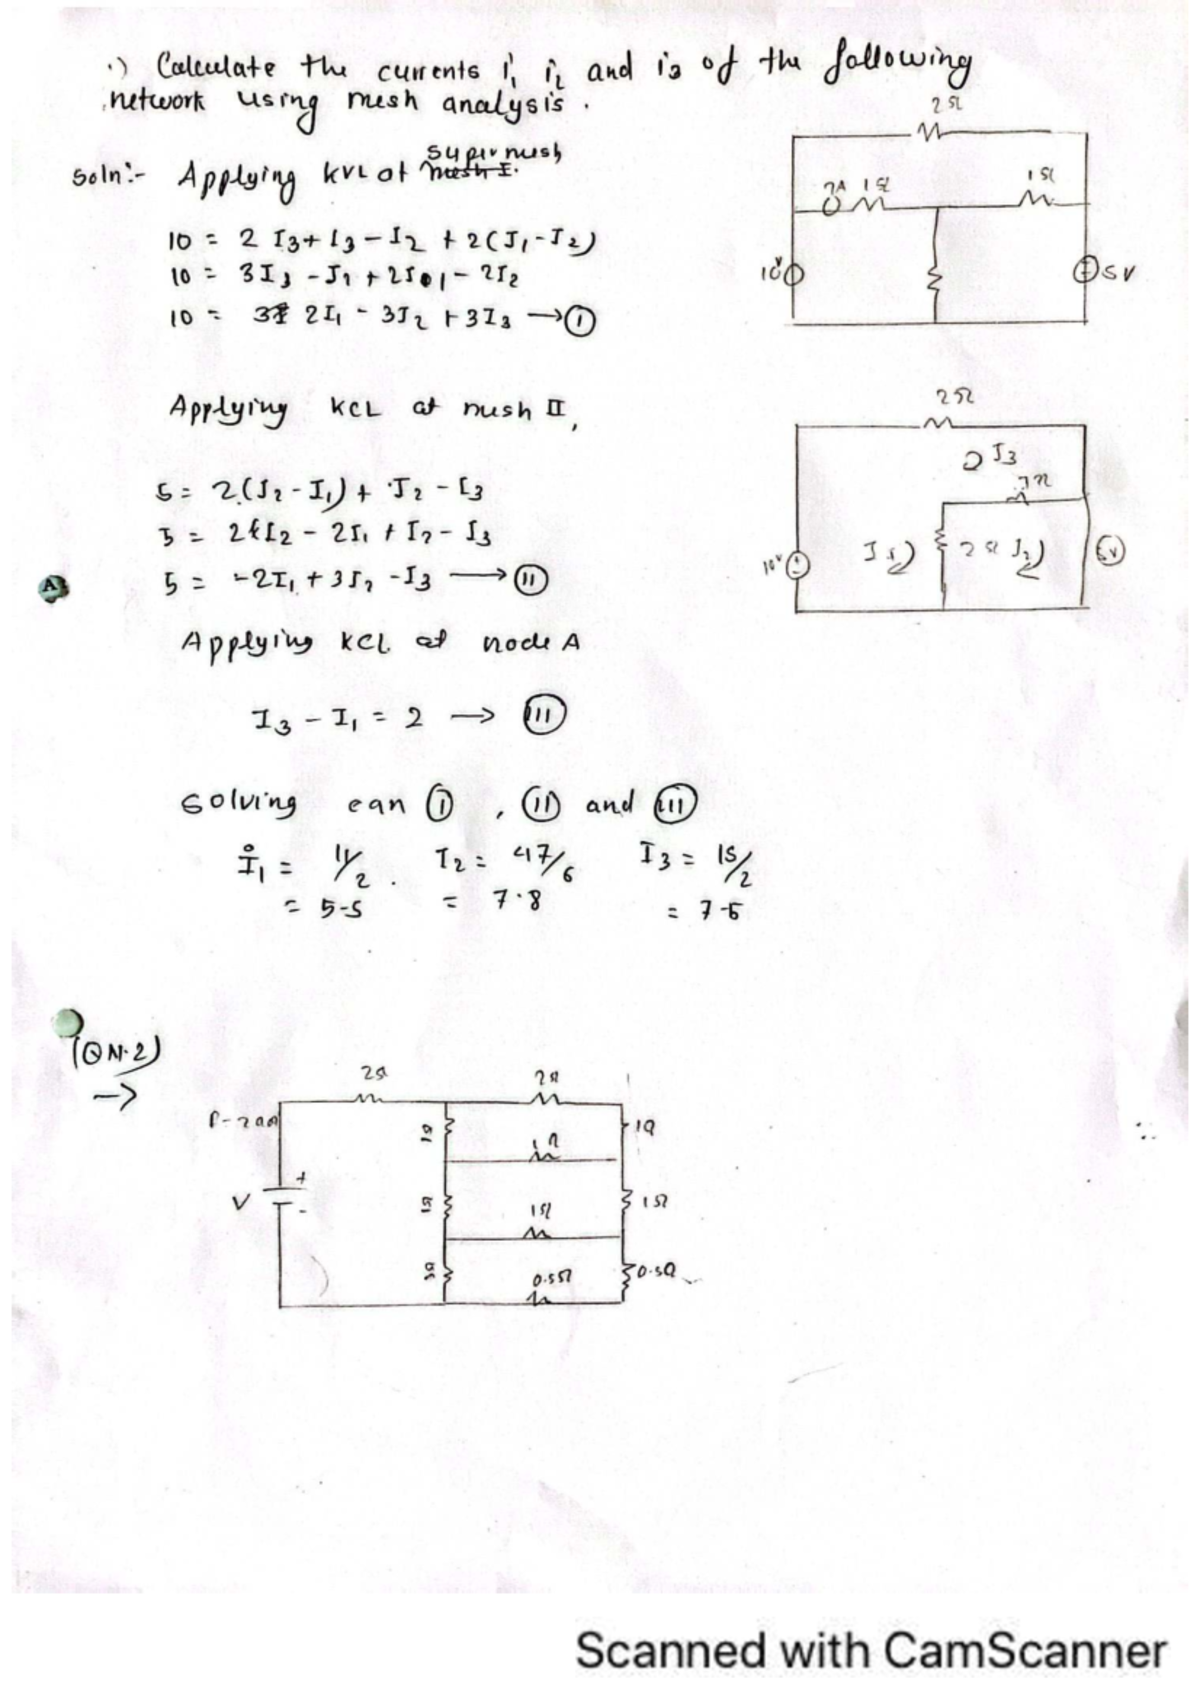 1) Calculate the currents i1 i2 and i3 of the following
network using mesh analysis.
2Ω
Soln:- Applying KVL at supermesh
1Ω
1Ω
10 = 2 I3 + I3 - I2 + 2(I1 - I2)
10 = 3I3 - I2 + 2I1 - 2I2
10V
5V
10 = 2I1 - 3I2 + 3I3 → (I)
Applying KCL at mesh II,
2Ω
I3
5 = 2(I2 - I1) + I2 - I3
5 = 2I2 - 2I1 + I2 - I3
10V
I1
2Ω I2
5V
A
5 = -2I1 + 3I2 - I3 → (II)
Applying KCL at node A
I3 - I1 = 2 → (III)
Solving eqn (I), (II) and (III)
I1 = 11/2. I2 = 47/6 I3 = 15/2
= 5.5 = 7.8 = 7.5
(QN.2)
→
2Ω
2Ω
1Ω
1Ω
1Ω
V
+
-
1Ω
1Ω
1Ω
0.5Ω
0.5Ω
Scanned with CamScanner